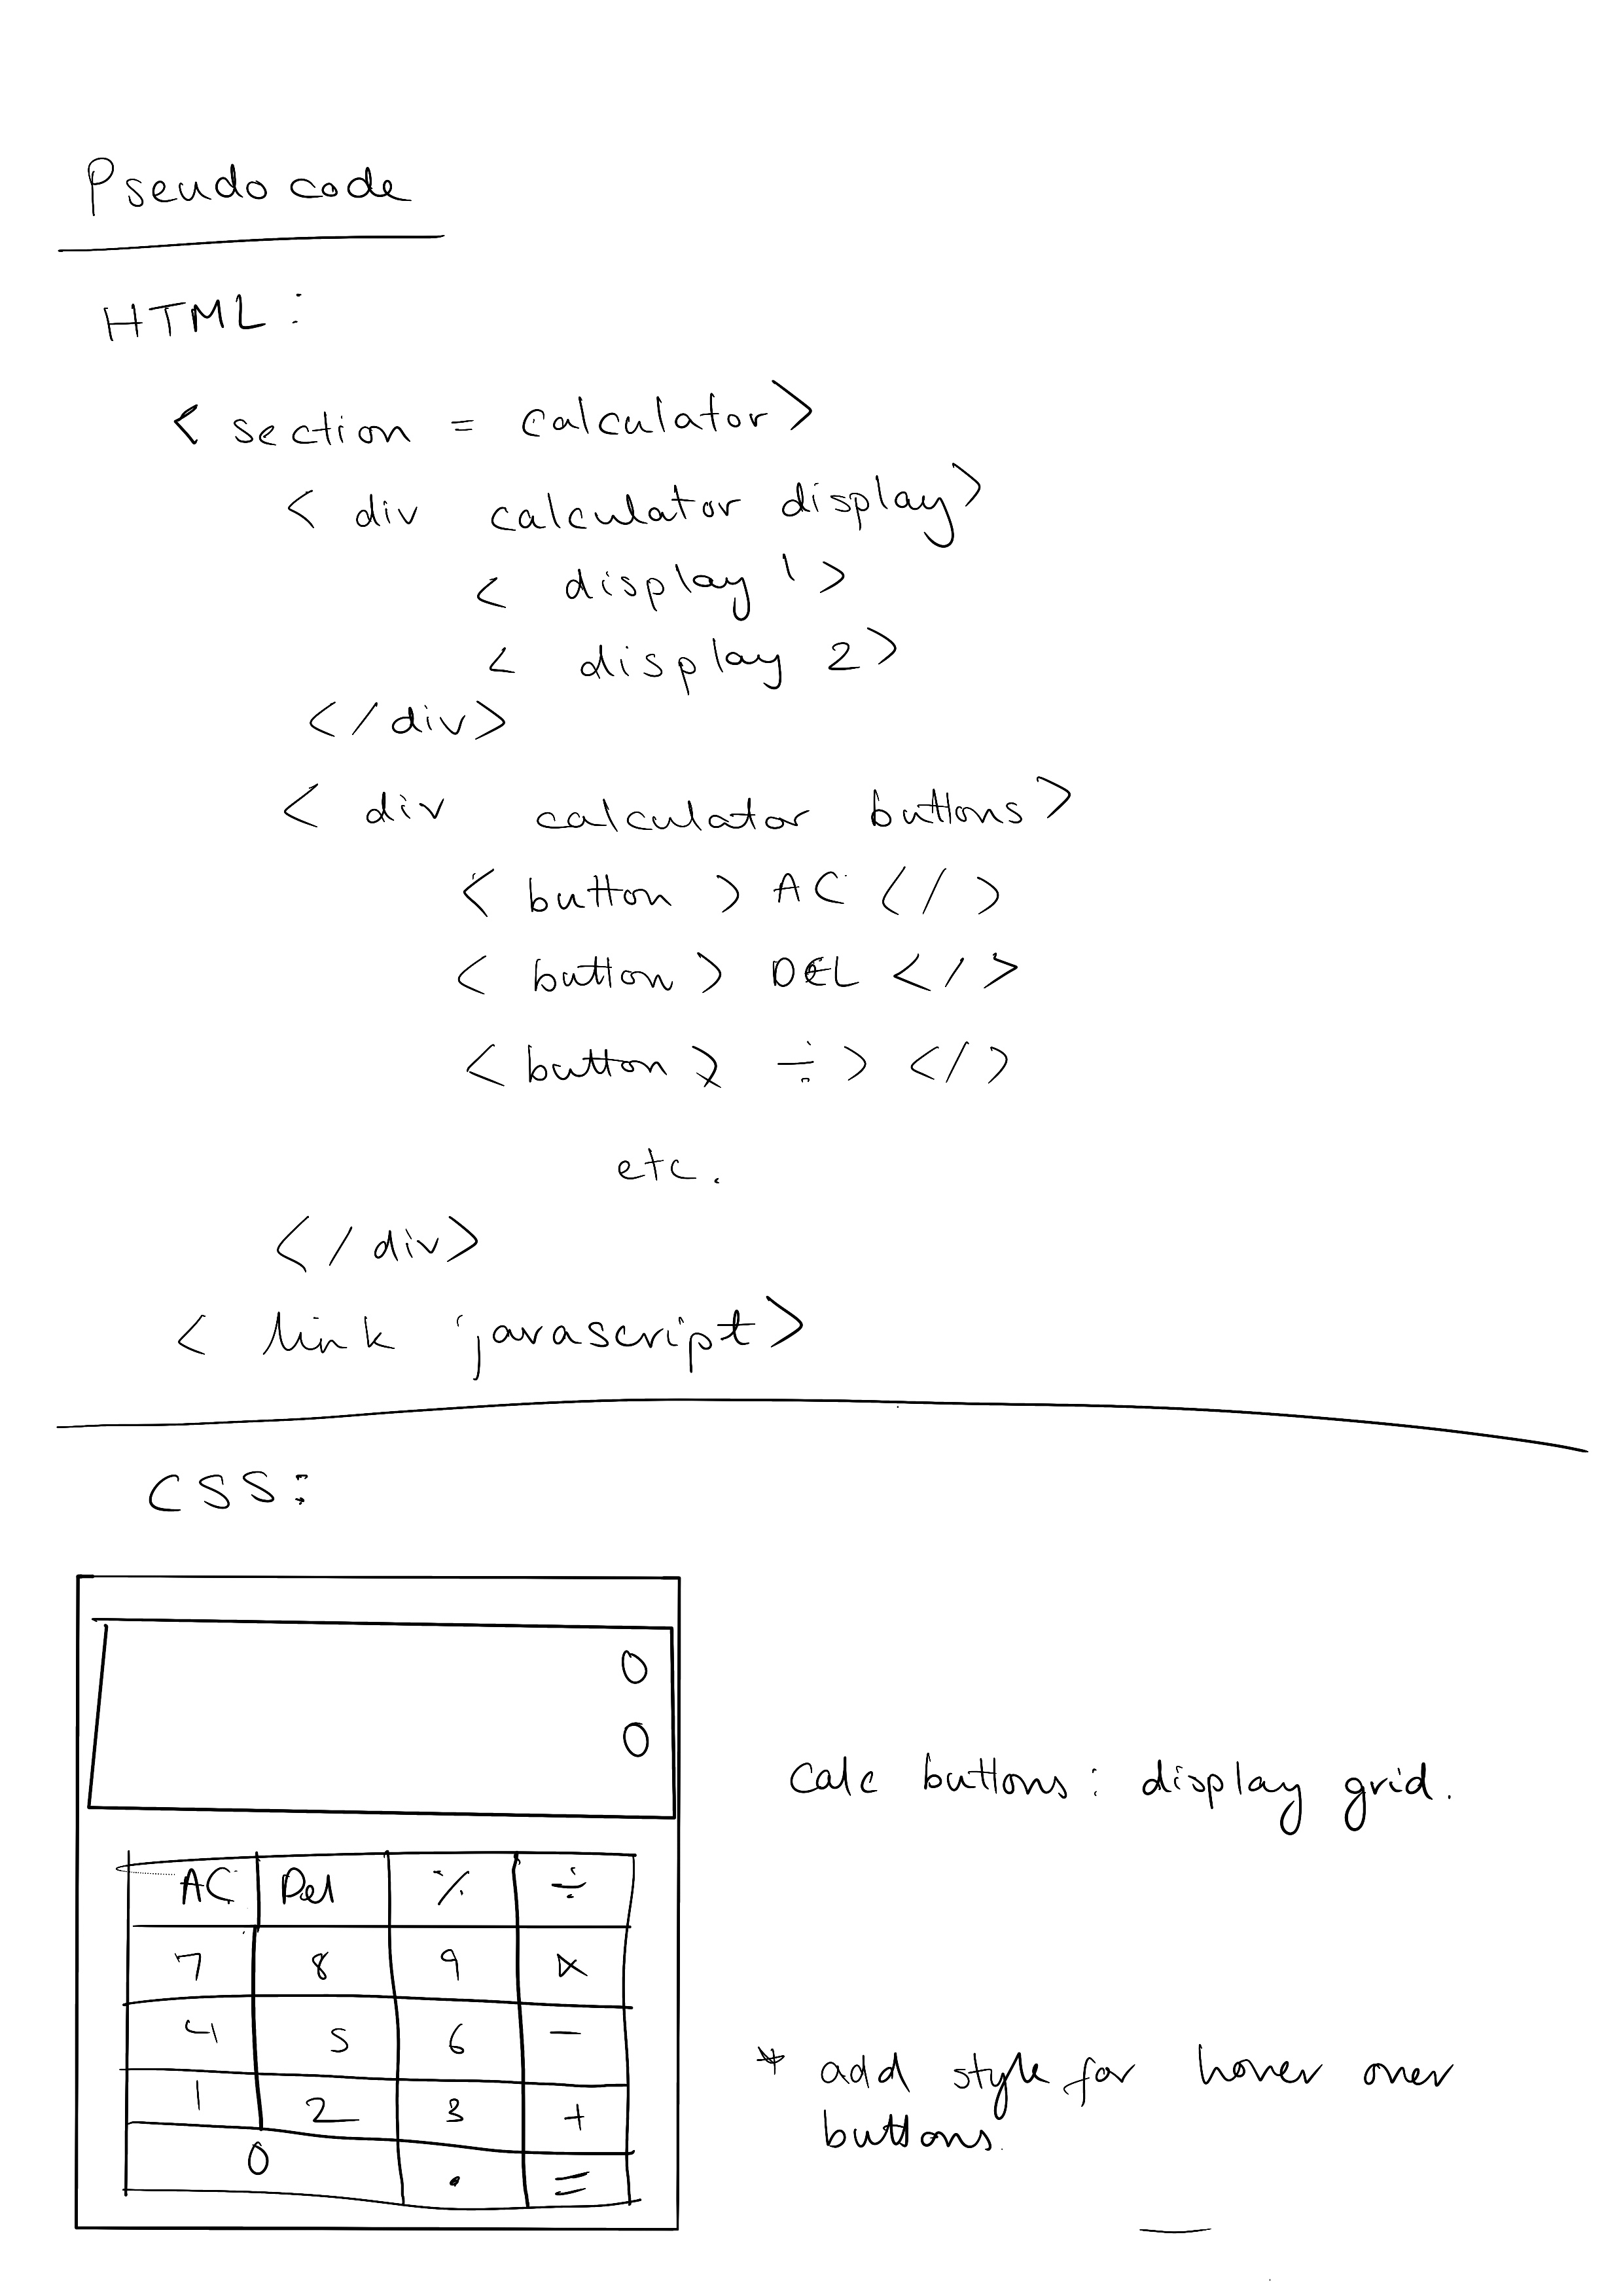 Pseudo code
HTML :
< section = calculator>
< div calculator display>
< display 1 >
< display 2 >
</div>
< div calculator buttons>
< button > AC </ >
< button > DEL </>
< button > ÷ > </>
etc.
</div>
< link javascript>
CSS :
0
0
calc buttons : display grid.
AC Del % ÷
7 8 9 ×
4 5 6 −
1 2 3 +
0 . =
* add style for hover over
buttons.